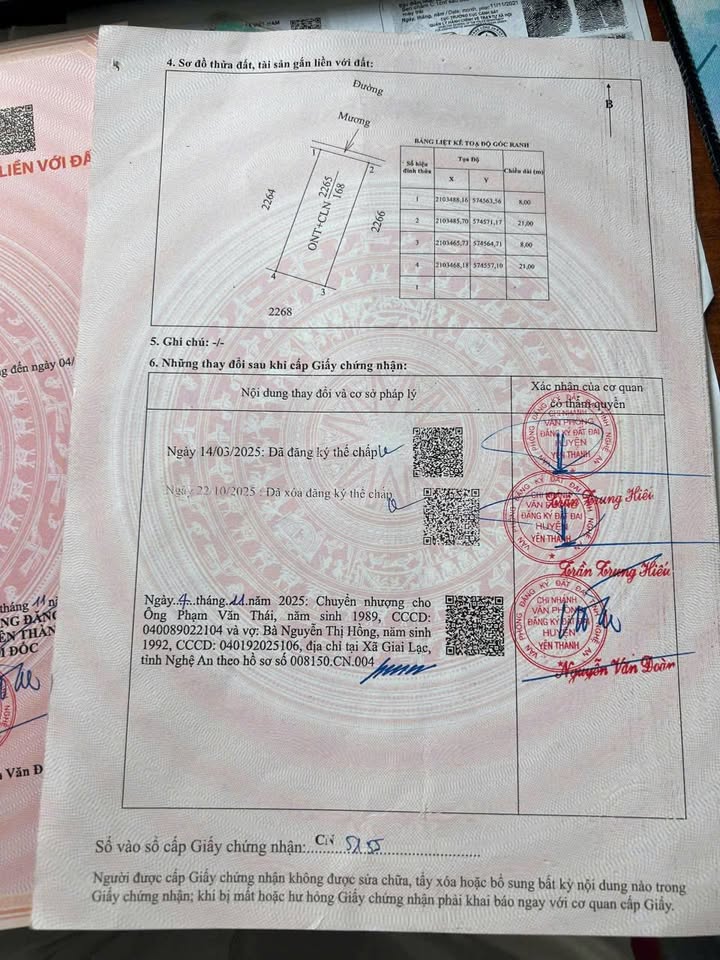 LIỀN VỚI ĐẤ
4. Sơ đồ thửa đất, tài sản gắn liền với đất:
Đường
Mương
B
1
2
2264
ONT+CLN 2265
168
2266
4
3
2268
BẢNG LIỆT KÊ TOẠ ĐỘ GÓC RANH
Số hiệu đỉnh thửa
Tọa Độ
Chiều dài (m)
X
Y
1 2103488,16 574563,56 8,00
2 2103485,70 574571,17 21,00
3 2103465,73 574564,71 8,00
4 2103468,18 574557,10 21,00
1
5. Ghi chú: -/-
6. Những thay đổi sau khi cấp Giấy chứng nhận:
Nội dung thay đổi và cơ sở pháp lý
Xác nhận của cơ quan
có thẩm quyền
Ngày 14/03/2025: Đã đăng ký thế chấp
CHI NHÁNH
VĂN PHÒNG
ĐĂNG KÝ ĐẤT ĐAI
HUYỆN
YÊN THÀNH
Trần Trung Hiếu
Ngày 22/10/2025: Đã xóa đăng ký thế chấp
CHI NHÁNH
VĂN PHÒNG
ĐĂNG KÝ ĐẤT ĐAI
HUYỆN
YÊN THÀNH
Trần Trung Hiếu
Ngày 4 tháng 11 năm 2025: Chuyển nhượng cho
Ông Phạm Văn Thái, năm sinh 1989, CCCD:
040089022104 và vợ: Bà Nguyễn Thị Hồng, năm sinh
1992, CCCD: 040192025106, địa chỉ tại Xã Giai Lạc,
tỉnh Nghệ An theo hồ sơ số 008150.CN.004
VĂN PHÒNG ĐĂNG KÝ ĐẤT ĐAI TỈNH NGHỆ AN
CHI NHÁNH
VĂN PHÒNG
ĐĂNG KÝ ĐẤT ĐAI
HUYỆN
YÊN THÀNH
Nguyễn Văn Đoàn
Số vào sổ cấp Giấy chứng nhận: CN 5255
Người được cấp Giấy chứng nhận không được sửa chữa, tẩy xóa hoặc bổ sung bất kỳ nội dung nào trong
Giấy chứng nhận; khi bị mất hoặc hư hỏng Giấy chứng nhận phải khai báo ngay với cơ quan cấp Giấy.
g đến ngày 04/
tháng 11
M ĐỐC
Văn Đ